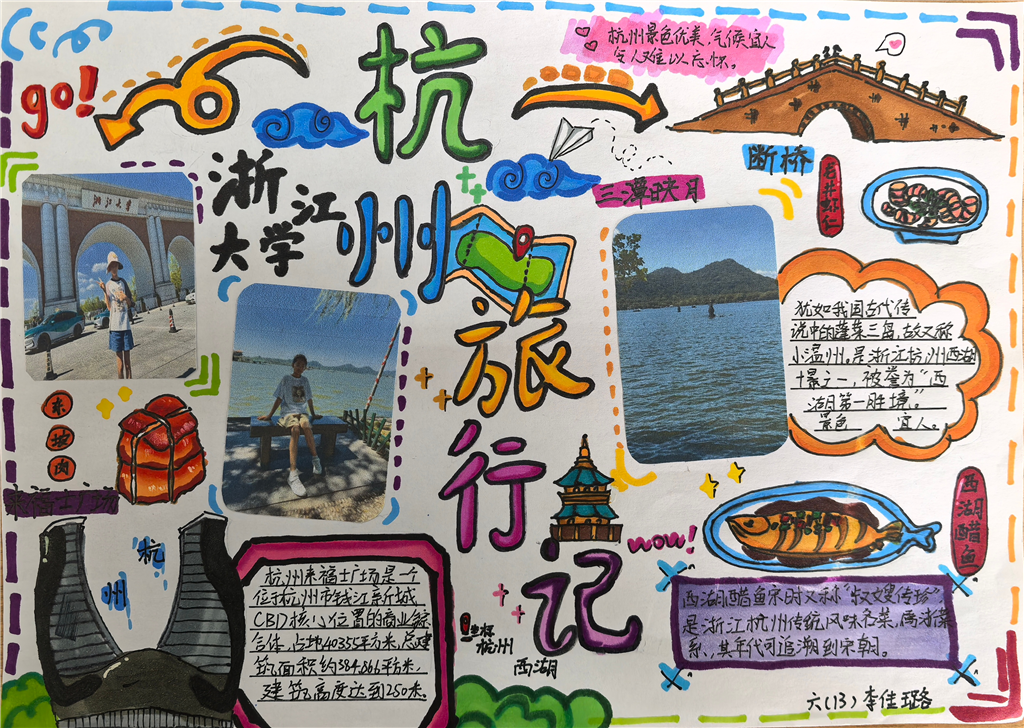 杭州旅行记
go!
杭州景色优美,气候宜人
令人难以忘怀。
断桥
浙江
大学
浙江大学
三潭映月
龙井虾仁
犹如我国古代传
说中的蓬莱三岛,故又称
小瀛州。是浙江杭州西湖
十景之一,被誉为“西
湖第一胜境。”
景色 宜人。
东坡肉
来福士广场
杭州
杭州来福士广场是一个
位于杭州市钱江新城
CBD核心位置的商业综
合体,占地40355平方米,总建
筑面积约384,661平方米,
建筑高度达到250米。
坐标
杭州
西湖
wow!
西湖醋鱼
西湖醋鱼宋时又称“叔嫂传珍”
是浙江杭州传统风味名菜,
系,其年代可追溯到宋朝。
六(13) 李佳璐